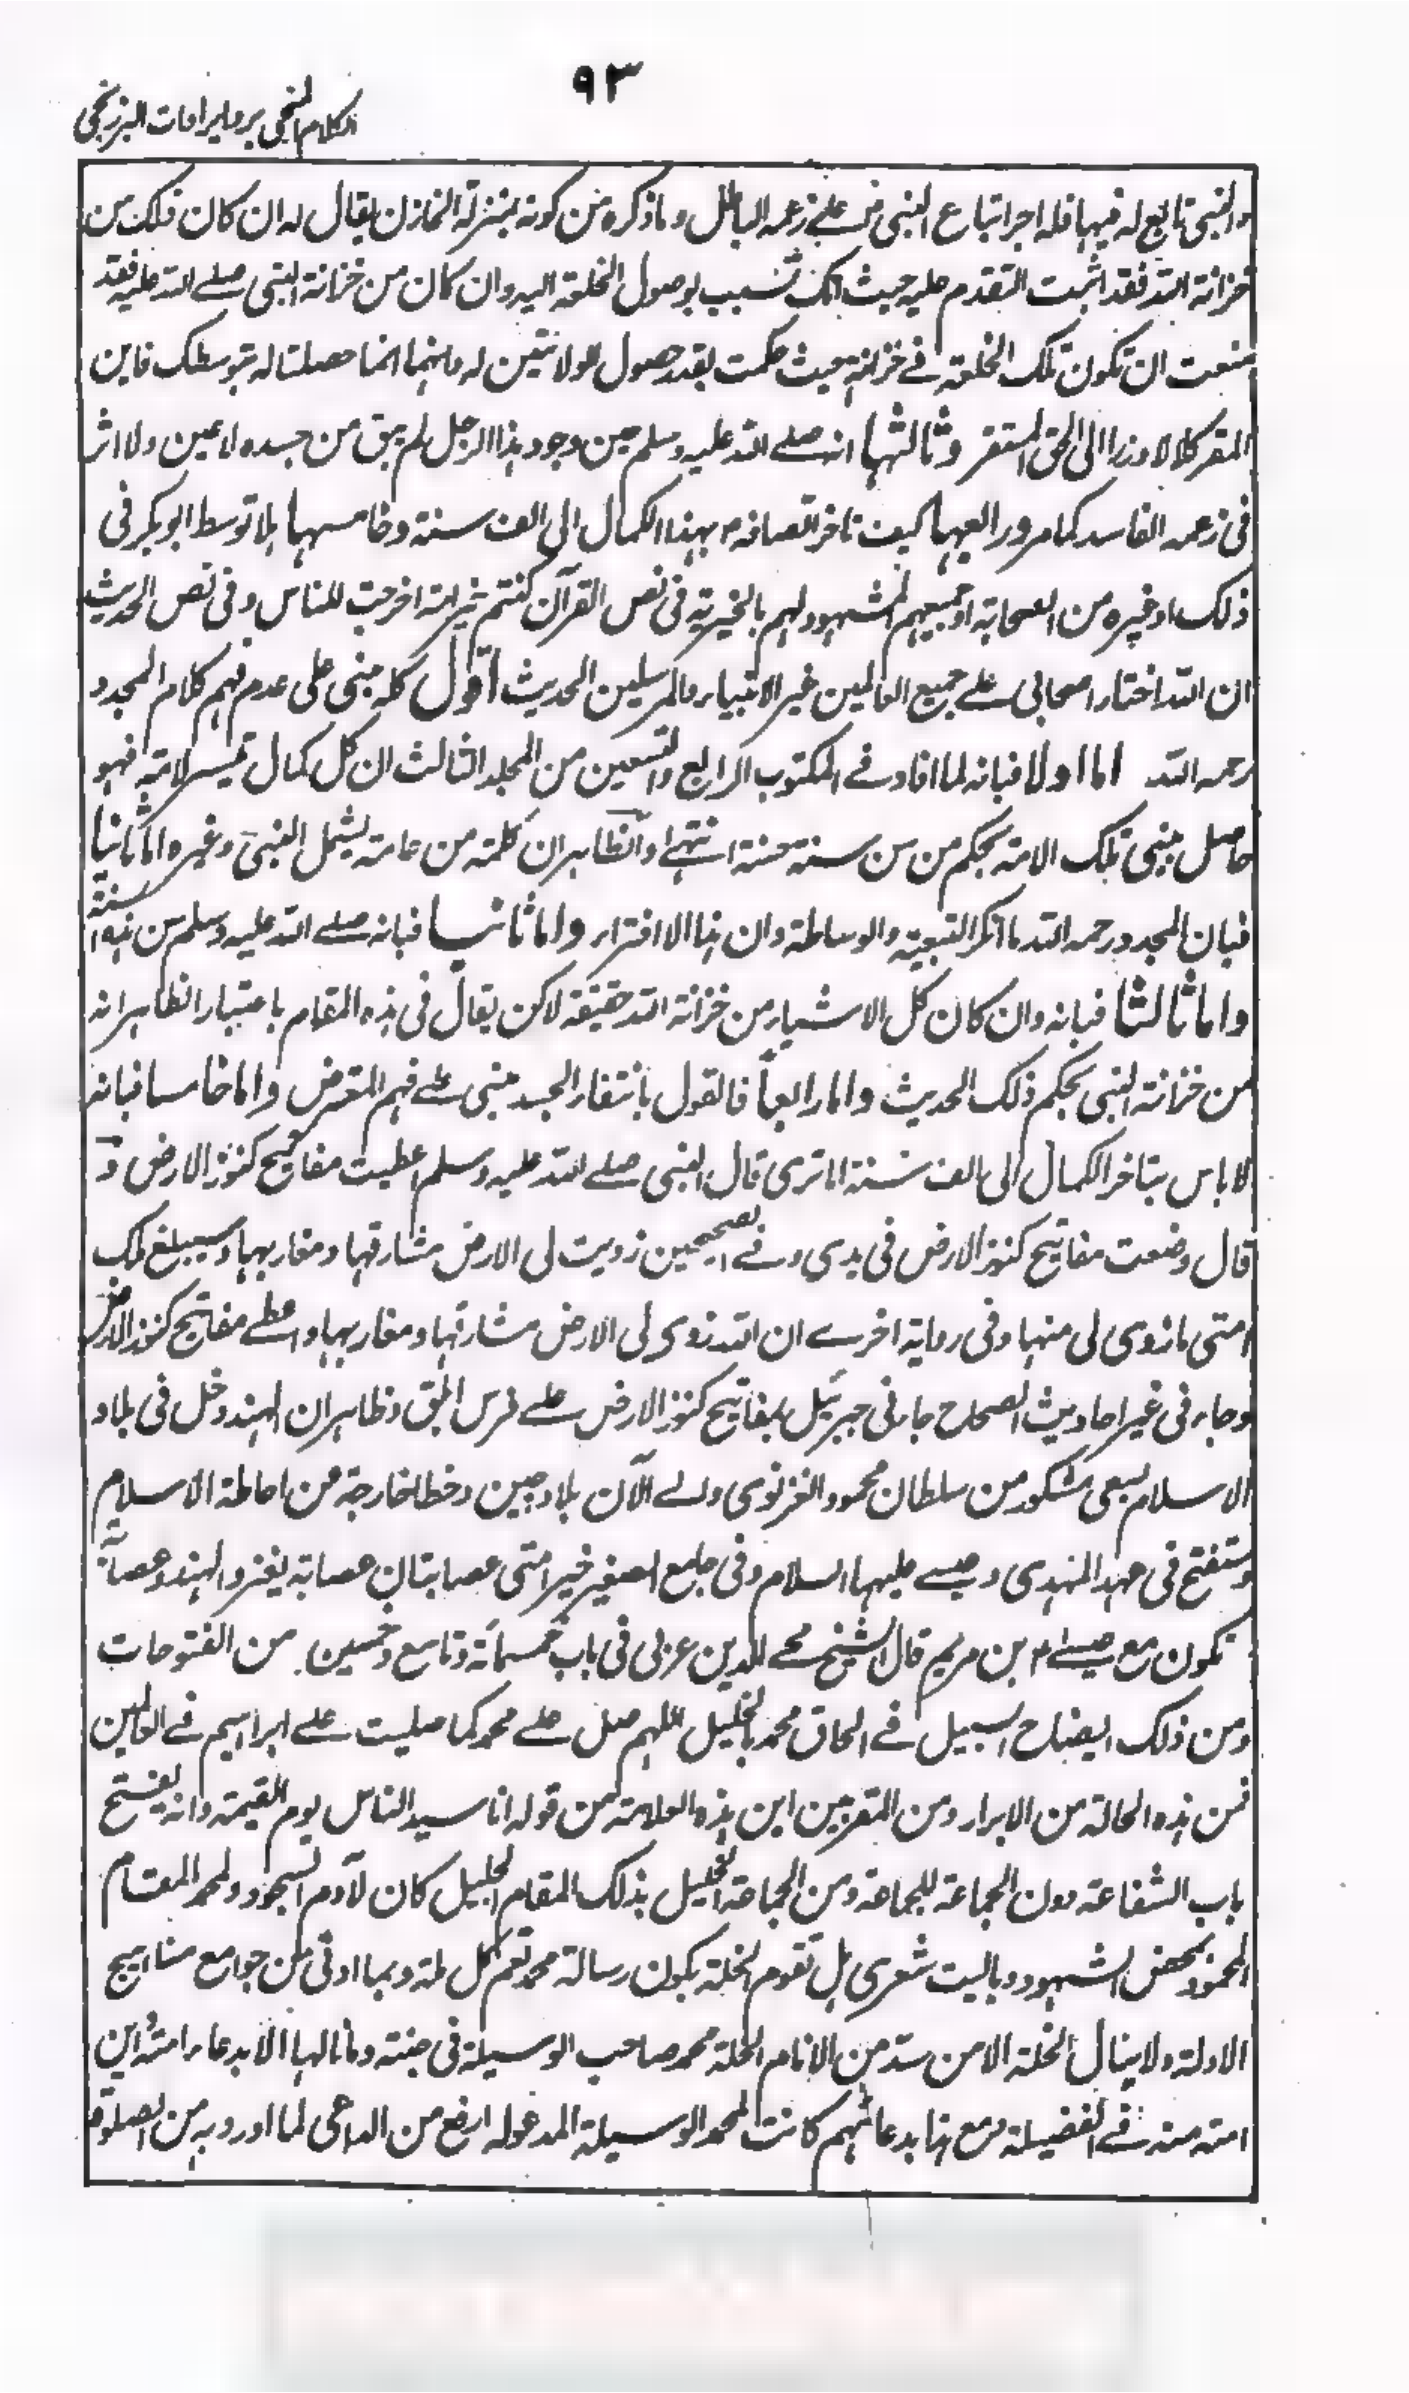 ٩٣
الكلام المنجي برد ايرادات البرزنجي
والنبي تابع له فيها فله اجر اتباع النبي من على زعمه الباطل وما ذكره من كونه بمنزلة الخازن يقال له ان كان ذلك من
خزانة الله فقد اثبت التقدم عليه حيث انك تسبب بوصول الخلعة اليه وان كان من خزانة النبي صلى الله عليه فقد
منعت ان تكون تلك الخلعة في خزانته حيث حكمت بقدر حصول الولايتين له وانهما انما حصلتا له بتوسطك فاين
المفر كلا لا وزر الى الحق المستقر وثالثها انه صلى الله عليه وسلم حين وجود هذا الرجل لم يبق من جسده لا عين ولا اثر
في زعمه الفاسد كما مر ورابعها كيف تاخر اتصافه ٢ بهذا الكمال الى الف سنة وخامسها هلا توسط ابو بكر في
ذلك او غيره من الصحابة او جميعهم المشهود لهم بالخيرية في نص القرآن كنتم خير امة اخرجت للناس وفي نص الحديث
ان الله اختار اصحابي على جميع العالمين غير الانبياء والمرسلين الحديث اقول كله مبني على عدم فهم كلام المجدد
رحمه الله اما اولا فبانه لما افاد في المكتوب الرابع والتسعين من المجلد الثالث ان كل كمال تيسر لامته فهو
حاصل لنبي تلك الامة بحكم من سن سنة حسنة انتهى والظاهر ان كلمة من عامة يشمل النبي وغيره اما ثانيا
فبان المجدد رحمه الله ما انكر التبعية والوساطة وان هذا الا افتراء واما ثانيا فبانه صلى الله عليه وسلم سن هذه السنة
واما ثالثا فبانه وان كان كل الاشياء من خزانة الله حقيقة لاكن يقال في هذه المقام باعتبار الظاهر انه
من خزانة النبي بحكم ذلك الحديث واما رابعا فالقول بانتفاء الجسد مبني على فهم المعترض واما خامسا فبانه
لا باس بتاخر الكمال الى الف سنة اما ترى قال النبي صلى الله عليه وسلم اعطيت مفاتيح كنوز الارض و
قال وضعت مفاتيح كنوز الارض في يدي وفي الصحيحين زويت لي الارض مشارقها ومغاربها وسيبلغ ملك
امتي ما زوى لي منها وفي رواية اخرى ان الله زوى لي الارض مشارقها ومغاربها واعطى مفاتيح كنوز الارض
وجاء في غير احاديث الصحاح جاءني جبرئيل بمفاتيح كنوز الارض على فرس ابلق وظاهر ان الهند دخل في بلاد
الاسلام بسعي مشكور من سلطان محمود الغزنوي والى الآن بلاد چين وخطا خارجة من احاطة الاسلام
وستفتح في عهد المهدي وعيسى عليهما السلام وفي جامع الصغير خير امتي عصابتان عصابة يغزو الهند وعصابة
تكون مع عيسى ٢ بن مريم قال الشيخ محي الدين عربي في باب خمسمائة وتاسع وخمسين من الفتوحات
ومن ذلك ايضاح السبيل في الحاق محمد بالخليل اللهم صل على محمد كما صليت على ابراهيم في العالمين
فمن هذه الحالة من الابرار ومن المقربين اين هذه العلامة من قوله انا سيد الناس يوم القيمة وانه يفتح
باب الشفاعة دون الجماعة للجماعة ومن الجماعة الخليل بذلك المقام الجليل كان لآدم السجود ولمحمد المقام
المحمود بمحضر الشهود وياليت شعري هل تقوم الخلة بكون رسالة محمد تعم كل ملة وبما اوتي من جوامع مناهيج
الادلة ولا ينال الخلة الا من سد من الانام الخلة محمد صاحب الوسيلة في جنته وما نالها الا بدعاء امته اين
امته منه في الفضيلة ومع هذا بدعائهم كانت لمحمد الوسيلة المدعو له ارفع من الداعي لما اورد به من الصلوة